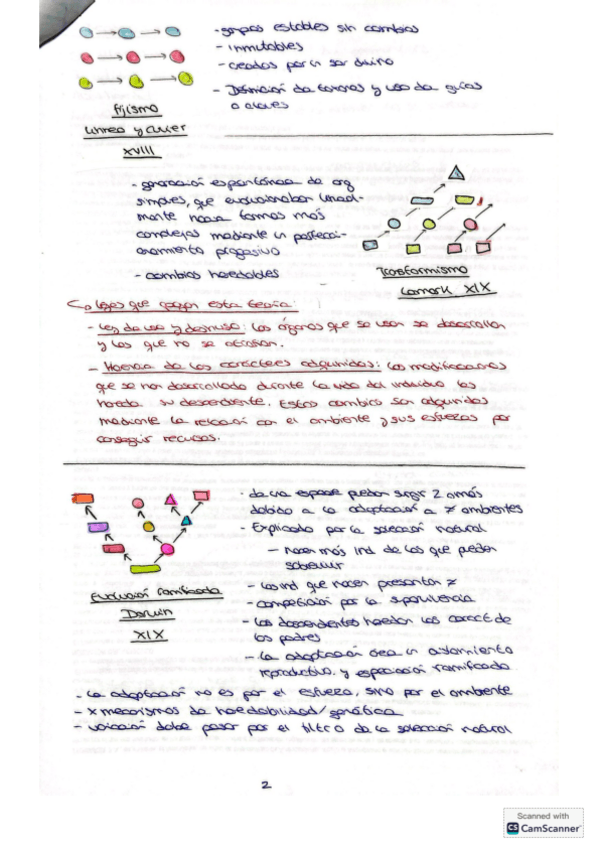 - grupos estables sin cambios
- inmutables
- creados por un ser divino
- Definición de taxones y uso de guías
o claves
Fijismo
Linneo y Cuvier
XVIII
- generación espontánea de org
simples, que evolucionaban lineal-
mente hacia formas más
complejas mediante un perfecci-
onamiento progresivo
- cambios heredables
Trasformismo
Lamark XIX
leyes que apoyan esta teoría:
- Ley de uso y desuso: los órganos que se usan se desarrollan
y los que no se atrofian.
- Herencia de los caracteres adquiridos: las modificaciones
que se han desarrollado durante la vida del individuo las
hereda su descendiente. Estos cambios son adquiridos
mediante la relación con el ambiente y sus esfuerzos por
conseguir recursos.
- de una especie pueden surgir 2 o más
debido a la adaptación a ≠ ambientes
- Explicada por la selección natural
- nacen más ind de los que pueden
sobrevivir
- los ind que nacen presentan ≠
- competición por la supervivencia
- los descendientes heredan los caract de
los padres
- la adaptación crea un aislamiento
reproductivo y especiación ramificada
Evolución ramificada
Darwin
XIX
- la adaptación no es por el esfuerzo, sino por el ambiente
- x mecanismos de heredabilidad/genética
- variación debe pasar por el filtro de la selección natural
2
Scanned with
CS CamScanner